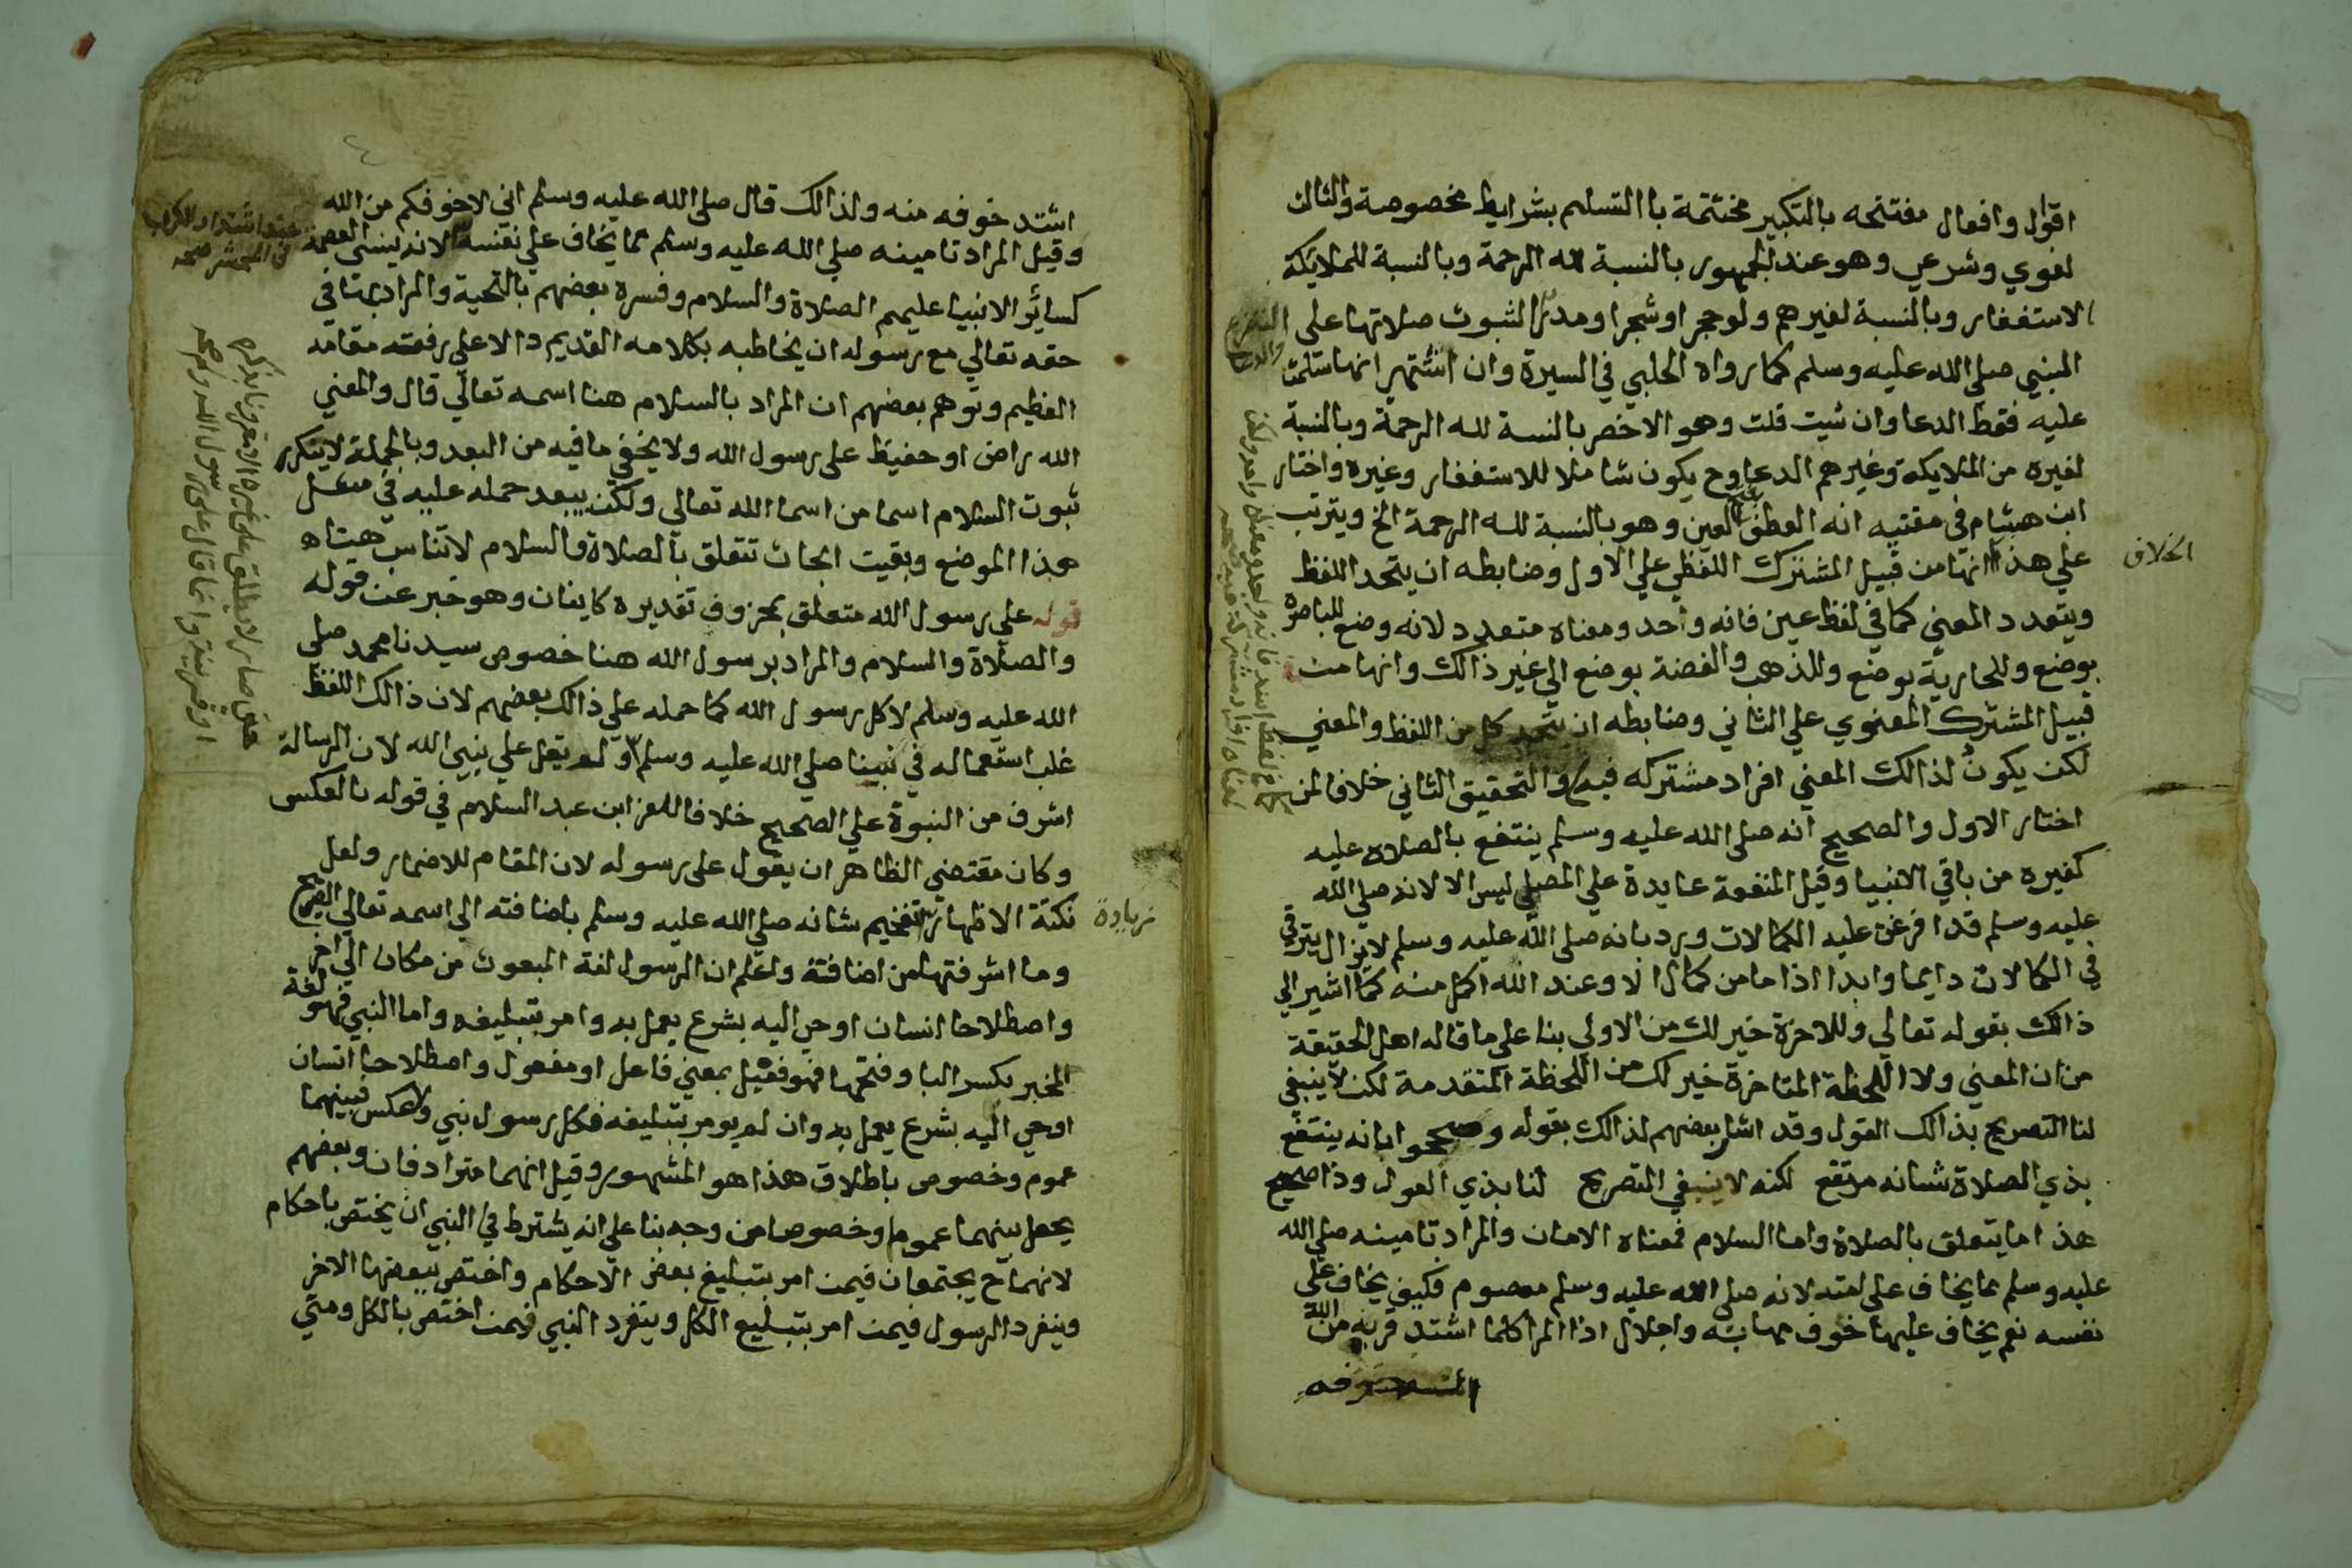 اقوال وافعال مفتتحه بالتكبير مختتمة باالتسليم بشرايط مخصوصة والثالث
لغوي وشرعي وهو عند الجمهور بالنسبة لله الرحمة وبالنسبة للملايكة
الاستغفار وبالنسبة لغيرهم ولو حجرا او شجرا او مدرا لثبوت صلاتها على
النبي صلى الله عليه وسلم كما رواه الحلبي في السيرة وان اشتهر انها سلمت
عليه فقط الدعا وان شيت قلت وهو الاخصر بالنسبة لله الرحمة وبالنسبة
لغيره من الملايكة وغيرهم الدعا وح يكون شاملا للاستغفار وغيره واختار
ابن هشام في مغنيه انه العطف العين وهو بالنسبة لله الرحمة الخ ويترتب
على هذا انها من قبيل المشترك اللفظي علي الاول وضابطه ان يتحد اللفظ
الخلاف
ويتعدد المعني كما في لفظ عين فانه واحد ومعناه متعدد لانه وضع للباصرة
بوضع وللجارية بوضع وللذهب والفضة بوضع الي غير ذالك وانها من
قبيل المشترك المعنوي علي الثاني وضابطه ان يتحد كل من اللفظ والمعني
لكن يكون لذالك المعني افراد مشتركه فيه والتحقيق الثاني خلافا لمن
اختار الاول والصحيح انه صلى الله عليه وسلم ينتفع بالصلاه عليه
كغيره من باقي الانبيا وقيل المنفعة عايدة علي المصلي ليس الا لانه صلي الله
عليه وسلم قد افرغت عليه الكمالات ورد بانه صلى الله عليه وسلم لايزال يترقي
في الكمالات دايما وابدا اذا ما من كمال الا وعند الله اكمل منه كما اشير الي
ذالك بقوله تعالي وللاخرة خير لك من الاولي بنا علي ما قاله اهل الحقيقة
من ان المعني ولا اللحظة المتاخرة خير لك من اللحظة المتقدمة لكن لاينبغي
لنا التصريح بذالك القول وقد اشار بعضهم لذالك بقوله وصححوا بانه ينتفع
بذي الصلاة شانه مرتفع لكنه لاينبغي التصريح لنا بذي القول وذا صحيح
هذا ما يتعلق بالصلاة واما السلام فمعناه الامان والمراد تامينه صلي الله
عليه وسلم مما يخاف على امته لانه صلى الله عليه وسلم معصوم فكيف يخاف على
نفسه نعم يخاف عليها خوف مهابة واجلال اذا المرا كلما اشتد قربه من الله
اشتد خوفه منه ولذالك قال صلى الله عليه وسلم اني لاخوفكم من الله
وقيل المراد تامينه صلي الله عليه وسلم مما يخاف علي نفسه لانه ينسي العصمة
كسائر الانبيا عليهم الصلاة والسلام وفسره بعضهم بالتحية والمراد بها في
حقه تعالي مع رسوله ان يخاطبه بكلامه القديم دالا علي رفعته مقامه
العظيم وتوهم بعضهم ان المراد بالسلام هنا اسمه تعالي قال والمعني
الله راض او حفيظ على رسول الله ولا يخفي ما فيه من البعد وبالجملة لا ينكر
ثبوت السلام اسما من اسما الله تعالي ولكن يبعد حمله عليه في مثل
هذا الموضع وبقيت ابحاث تتعلق بالصلاة والسلام لا تناسب هنا
قوله علي رسول الله متعلق بمحزوف تقديره كاينان وهو خبر عن قوله
والصلاة والسلام والمراد برسول الله هنا خصوص سيدنا محمد صلي
الله عليه وسلم لا كل رسول الله كما حمله علي ذالك بعضهم لان ذالك اللفظ
غلب استعماله في نبينا صلي الله عليه وسلم ولم يقل علي نبي الله لان الرسالة
اشرف من النبوة علي الصحيح خلافا للعز ابن عبد السلام في قوله بالعكس
وكان مقتضى الظاهر ان يقول على رسوله لان المقام للاضمار ولعل
نكتة الاظهار تفخيم شانه صلي الله عليه وسلم باضافته الي اسمه تعالي
زيادة
وما اشرفتها من اضافة واعلم ان الرسول لغة المبعوث من مكان الي اخر
واصطلاحا انسان اوحي اليه بشرع يعمل به وامر بتبليغه واما النبي فهو لغة
المخبر بكسر البا وفتحها فهو فعيل بمعني فاعل او مفعول واصطلاحا انسان
اوحي اليه بشرع يعمل به وان لم يومر بتبليغه فكل رسول نبي ولاعكس فبينهما
عموم وخصوص باطلاق هذا هو المشهور وقيل انهما مترادفان وبعضهم
يجعل بينهما عموما وخصوصا من وجه بنا على انه يشترط في النبي ان يختص باحكام
لانهما ح يجتمعان فيمن امر بتبليغ بعض الاحكام واختص ببعضها الاخر
وينفرد الرسول فيمن امر بتبليغ الكل وينفرد النبي فيمن اختص بالكل ومتي